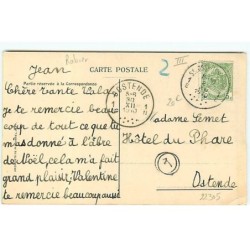 Jean
CARTE POSTALE
2 III
Partie réservée à la Correspondance
OSTENDE
Chère tante
Je te remercie beau
coup de tout ce que tu
m'as donné à l'abre
de Noël, cela m'a fait
grand plaisir. Valentine
te remercie beaucoup aussi
Madame Semet
Hôtel du Phare
Ostende
1